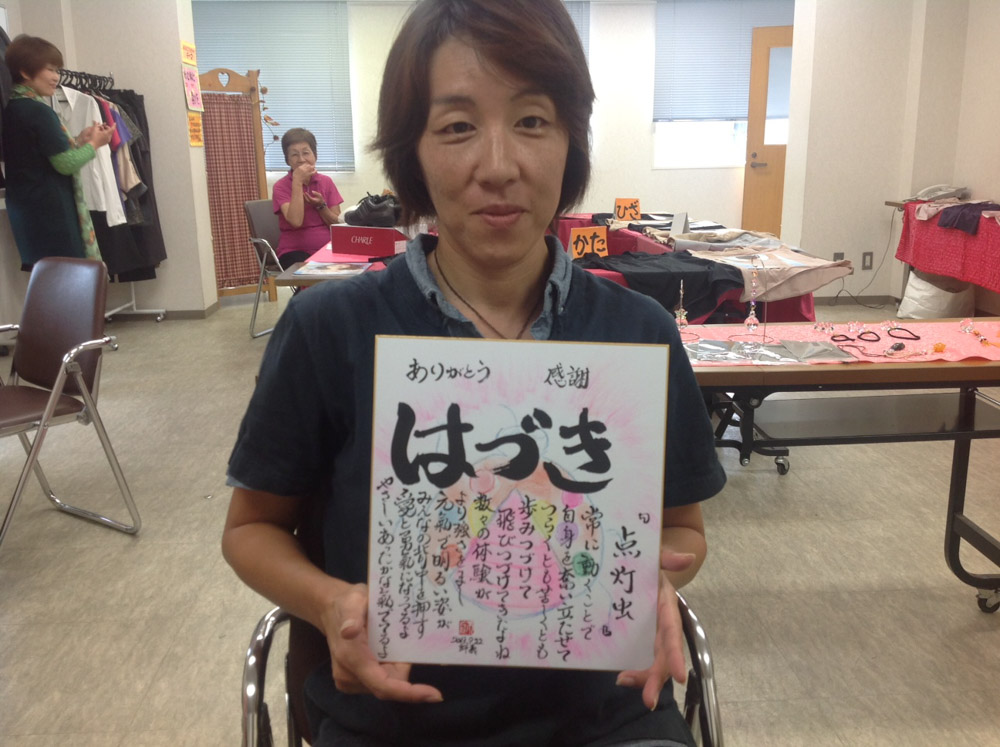 ありがとう 感謝
はづき
「点灯虫」
常に動くことで
自身を奮い立たせて
つらくとも苦しくとも
歩みつづけて
飛びつづけてきたよね
数々の体験が
より強さをまし
元気で明るい姿が
みんなの背中を押す
愛と勇気になってるよ
やさしいあったかな
かた
ひざ
CHARLE